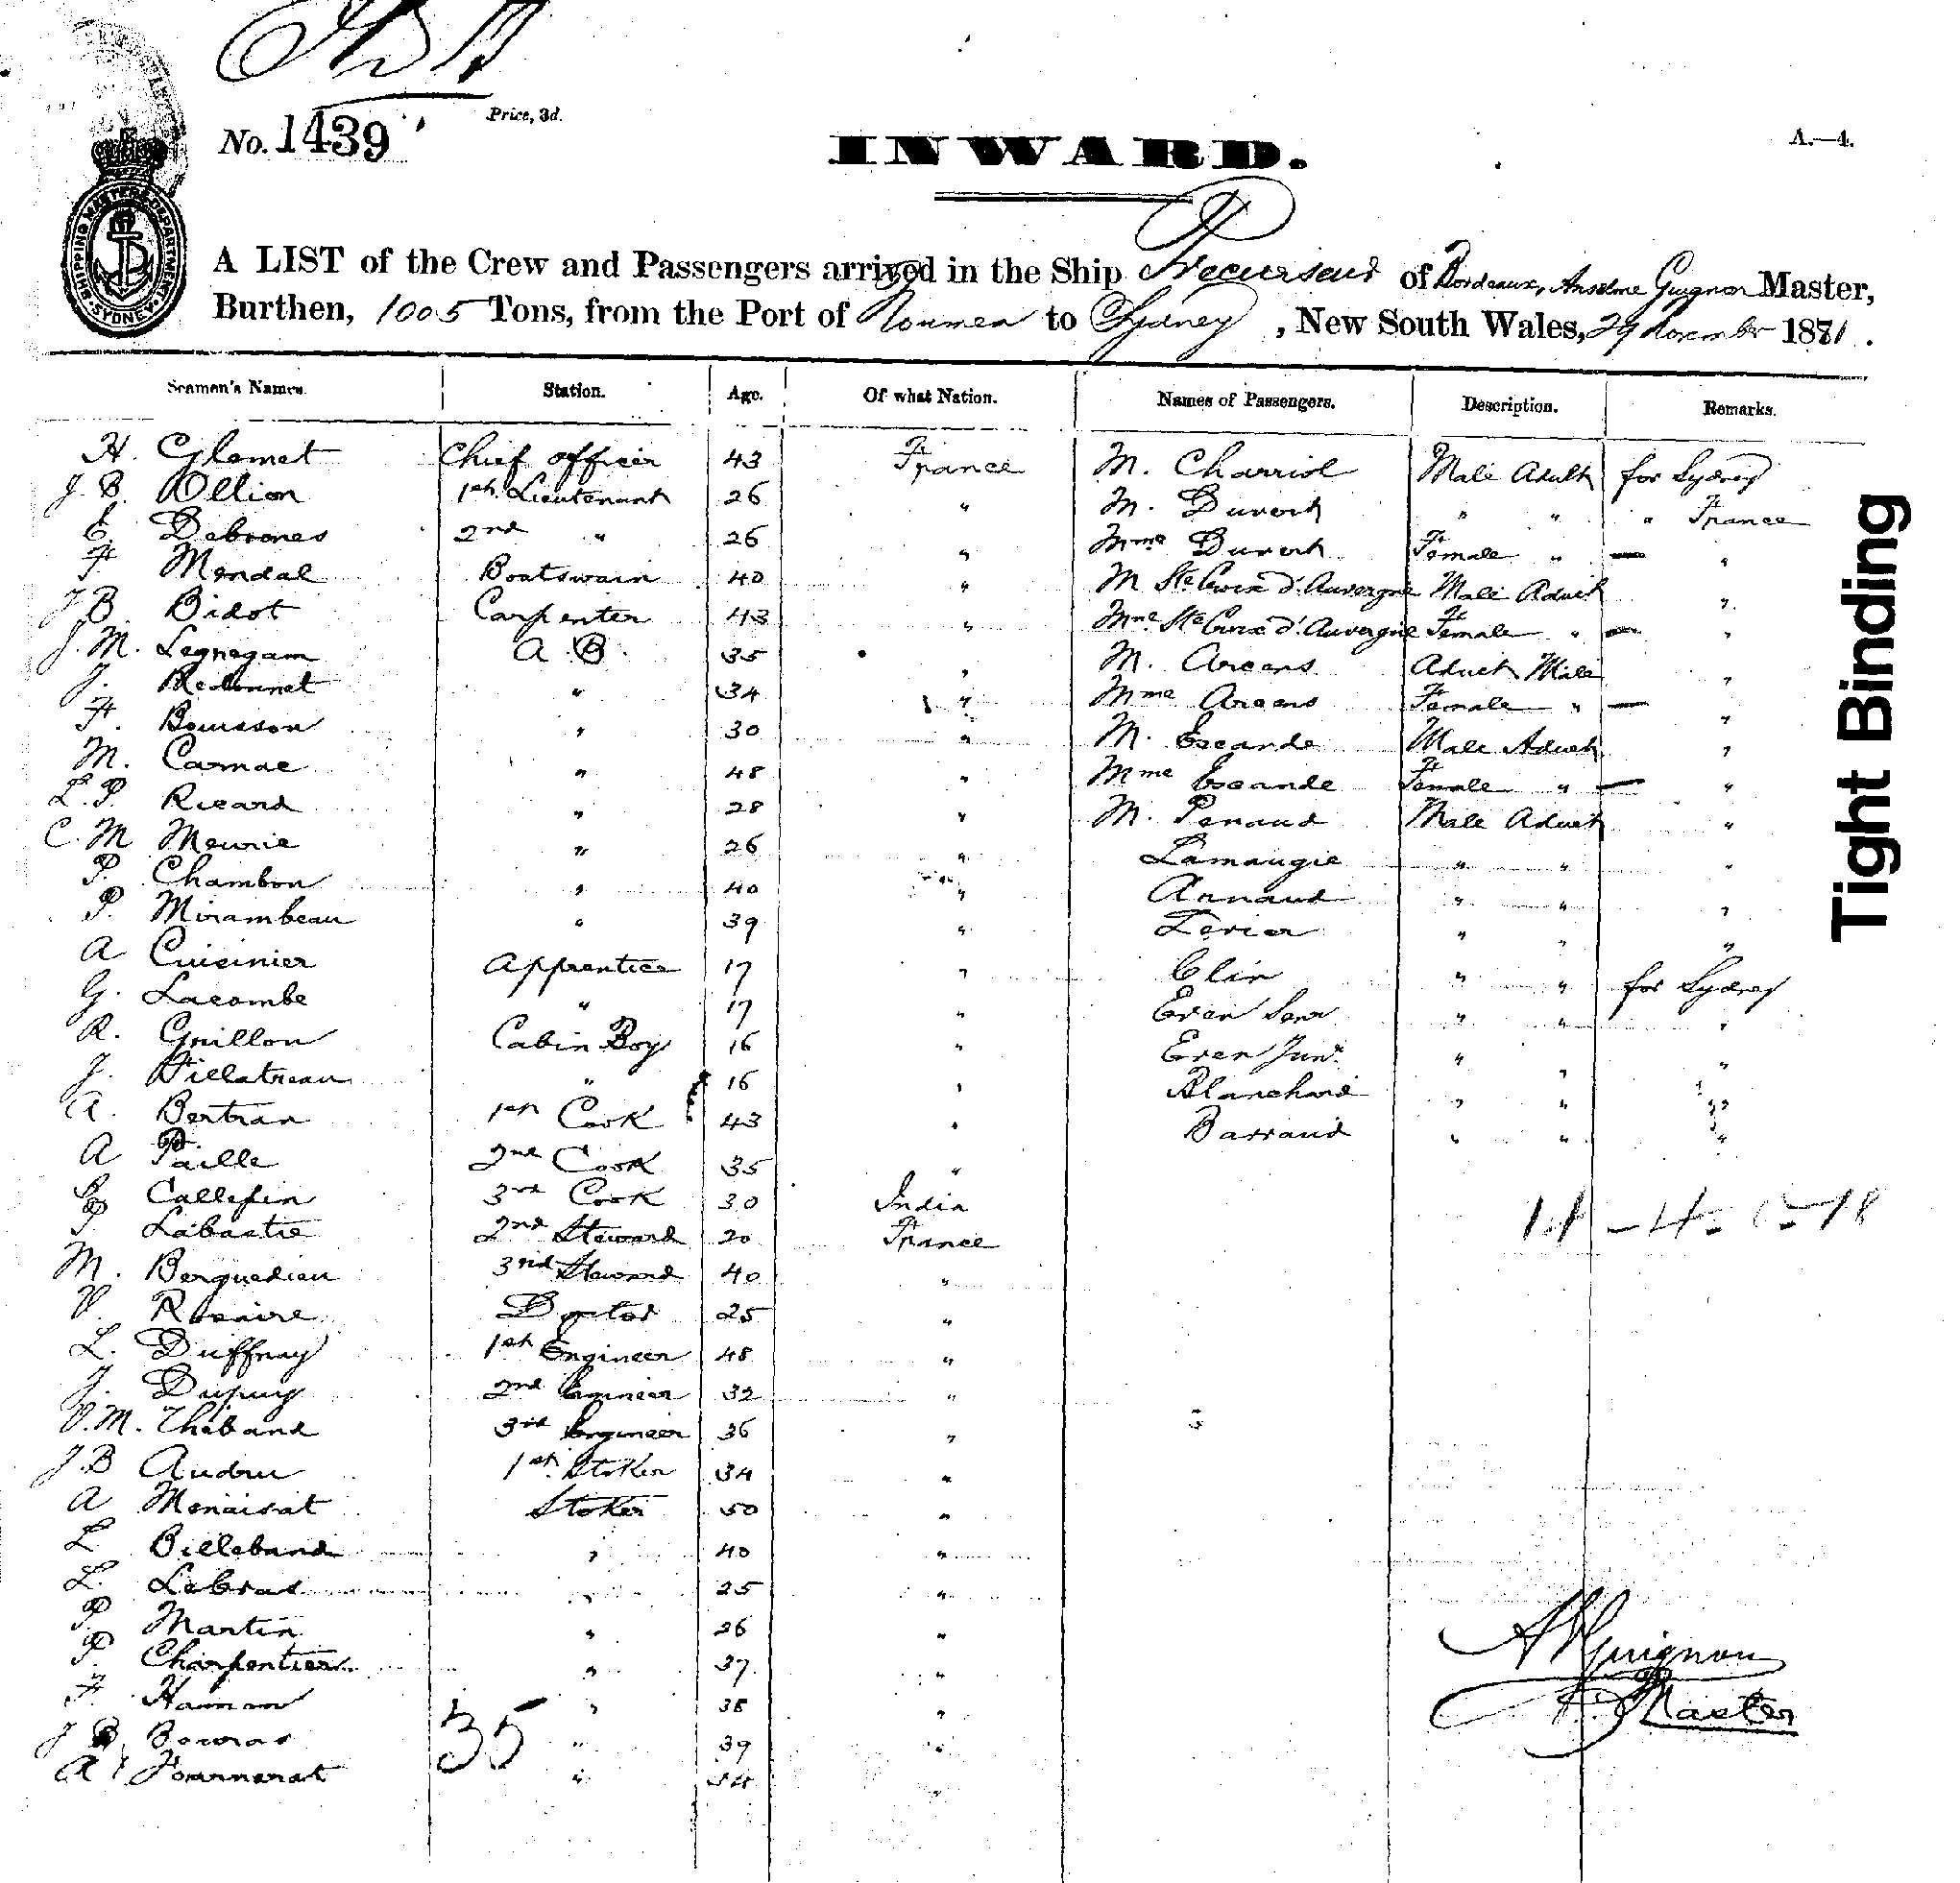 Price, 3d.
No. 1439
INWARD.
A.—4.
SHIPPING MASTERS DEPARTMENT SYDNEY
A LIST of the Crew and Passengers arrived in the Ship Precurseur of Bordeaux, Anselme Guignon Master,
Burthen, 1005 Tons, from the Port of Noumea to Sydney, New South Wales, 29 November 1871.
Seamen's Names. Station. Age. Of what Nation. Names of Passengers. Description. Remarks.
H. Glemet Chief officer 43 France M. Charriol Male Adult for Sydney
J. B. Ollion 1st Lieutenant 26 " M. Duvert " " " France
E. Debrones 2nd " 26 " Mme Duvert Female " — "
F. Mendal Boatswain 40 " M Ste Croix d'Auvergne Male Adult "
J B Bidot Carpenter 43 " Mme Ste Croix d'Auvergne Female " — "
J. M. Legregam A. B. 35 " M. Arcens Adult Male "
J. Redonnet " 34 " Mme Arcens Female " — "
F. Bouisson " 30 " M. Escande Male Adult "
M. Carmac " 48 " Mme Escande Female " — "
L. P. Ricard " 28 " M. Penaud Male Adult "
C. M Meurie " 26 " Lamaugie " " "
P. Chambon " 40 " Arnaud " " "
P. Mirambeau " 39 " " " "
A Cuisinier Apprentice 17 " Clin " " for Sydney
G. Lacombe " 17 " Even Senr " " "
R. Guillon Cabin Boy 16 " Even Junr. " " "
J. Villatreau " 16 " Blanchard " " "
A. Bertran 1st Cook 43 " Barraud " " "
A Paille 2nd Cook 35 "
Callefin 3rd Cook 30 India
P. Labastie 2nd Steward 20 France
M. Berguedieu 3rd Steward 40 "
V. Rosaire Doctor 25 "
L. Duffnay 1st Engineer 48 "
J. Dupuy 2nd Engineer 32 "
V. M. Thebaud 3rd Engineer 36 "
J. B Audru 1st Stoker 34 "
A Menaisat Stoker 50 "
L Billebaud " 40 "
L. Lebras " 25 "
P. Martin " 26 "
P Charpentier " 37 "
F. Hamon " 38 "
J B Bouras " 39 "
A Fournerat " 34 "
35
A Guignon
Master
Tight Binding